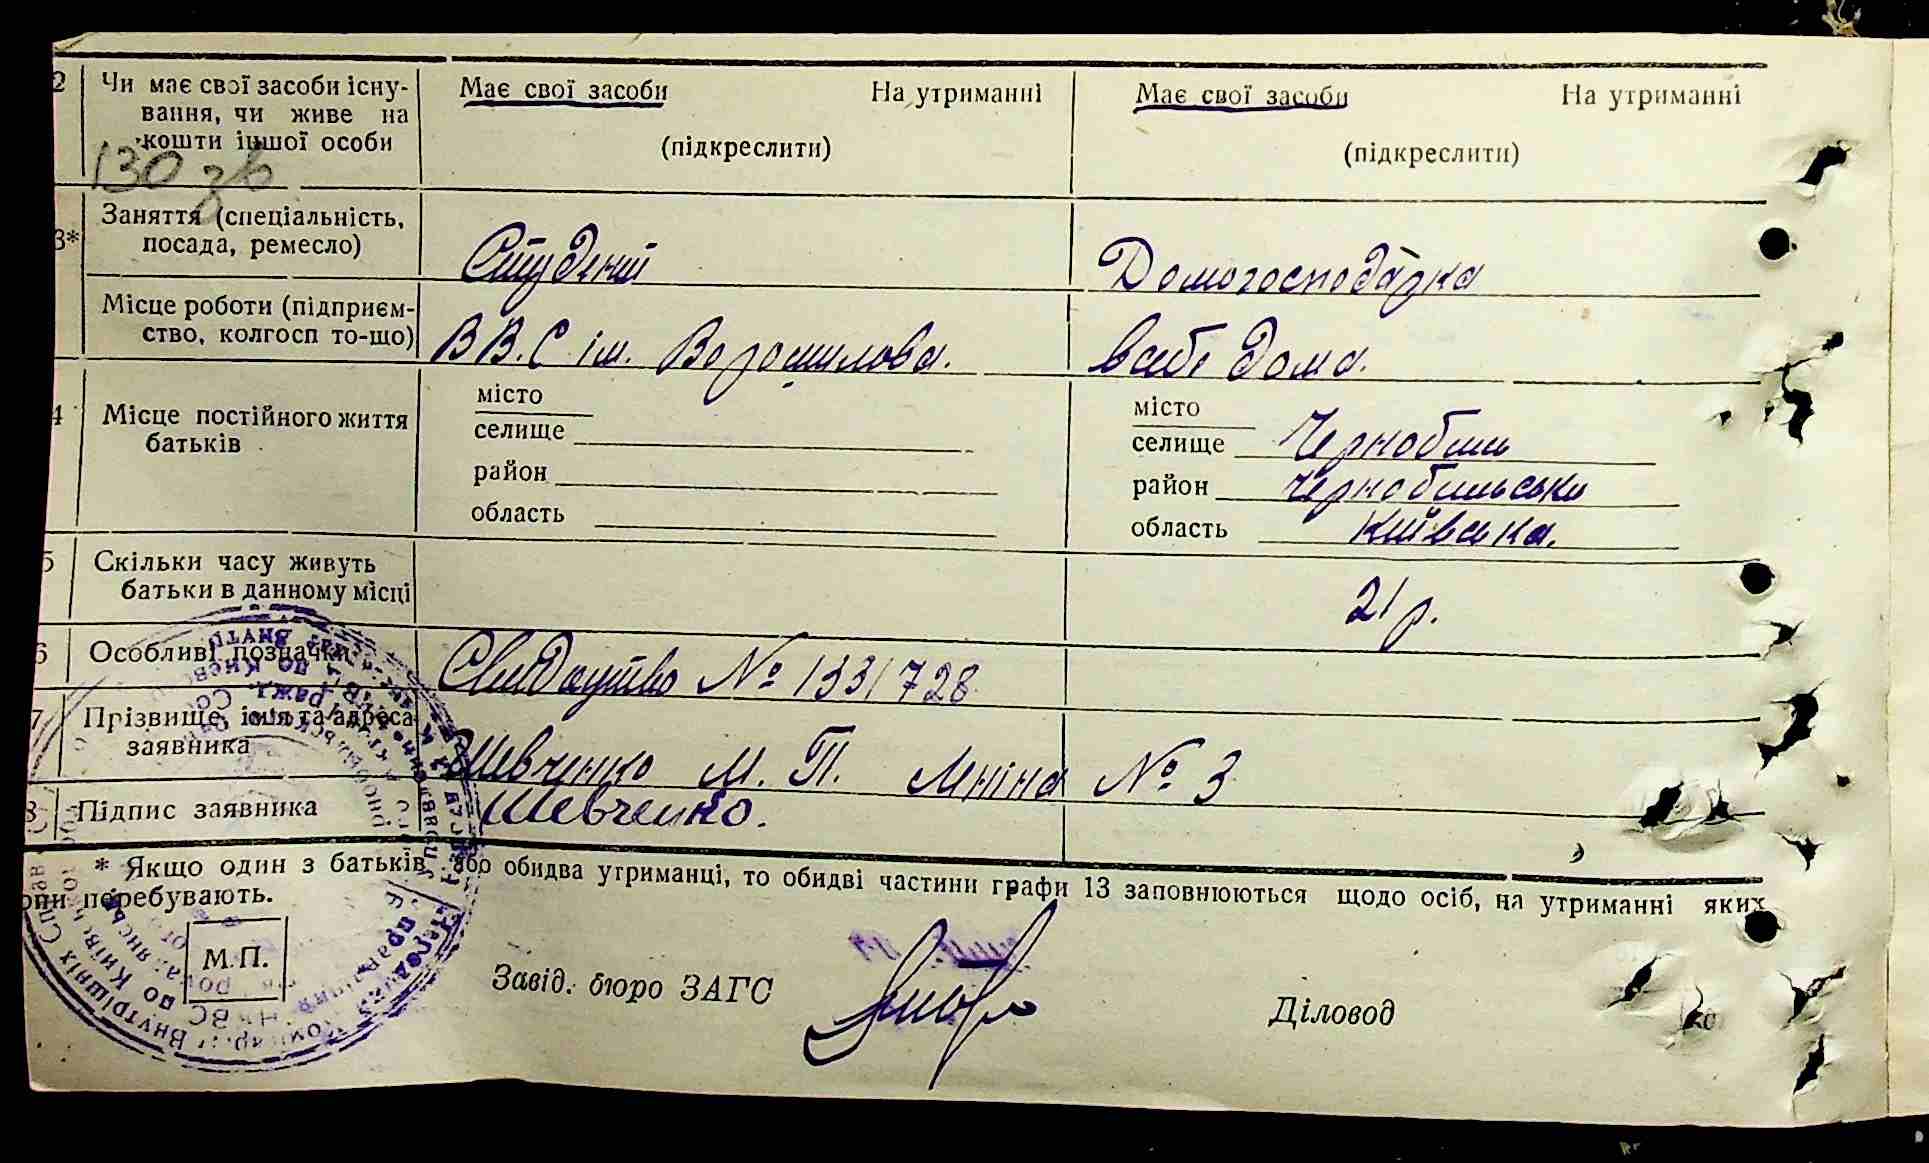 2 Чи має свої засоби існу- Має свої засоби На утриманні Має свої засоби На утриманні
вання, чи живе на
кошти іншої особи (підкреслити) (підкреслити)
130 зв
3* Заняття (спеціальність,
посада, ремесло) Студент Домогосподарка
Місце роботи (підприєм-
ство, колгосп то-що) ВВ.С ім. Ворошилова. в себе дома.
4 Місце постійного життя
батьків
місто місто
селище селище Чернобиль
район район Чернобильськи
область область Київська.
5 Скільки часу живуть
батьки в данному місці 21 р.
6 Особливі позначки Свидоцтво № 1331728
7 Прізвище, імя та адреса
заявника Шевченко М. П. Леніна № 3
8 Підпис заявника Шевченко.
* Якщо один з батьків або обидва утриманці, то обидві частини графи 13 заповнюються щодо осіб, на утриманні яких
они перебувають.
М.П.
Завід. бюро ЗАГС Діловод